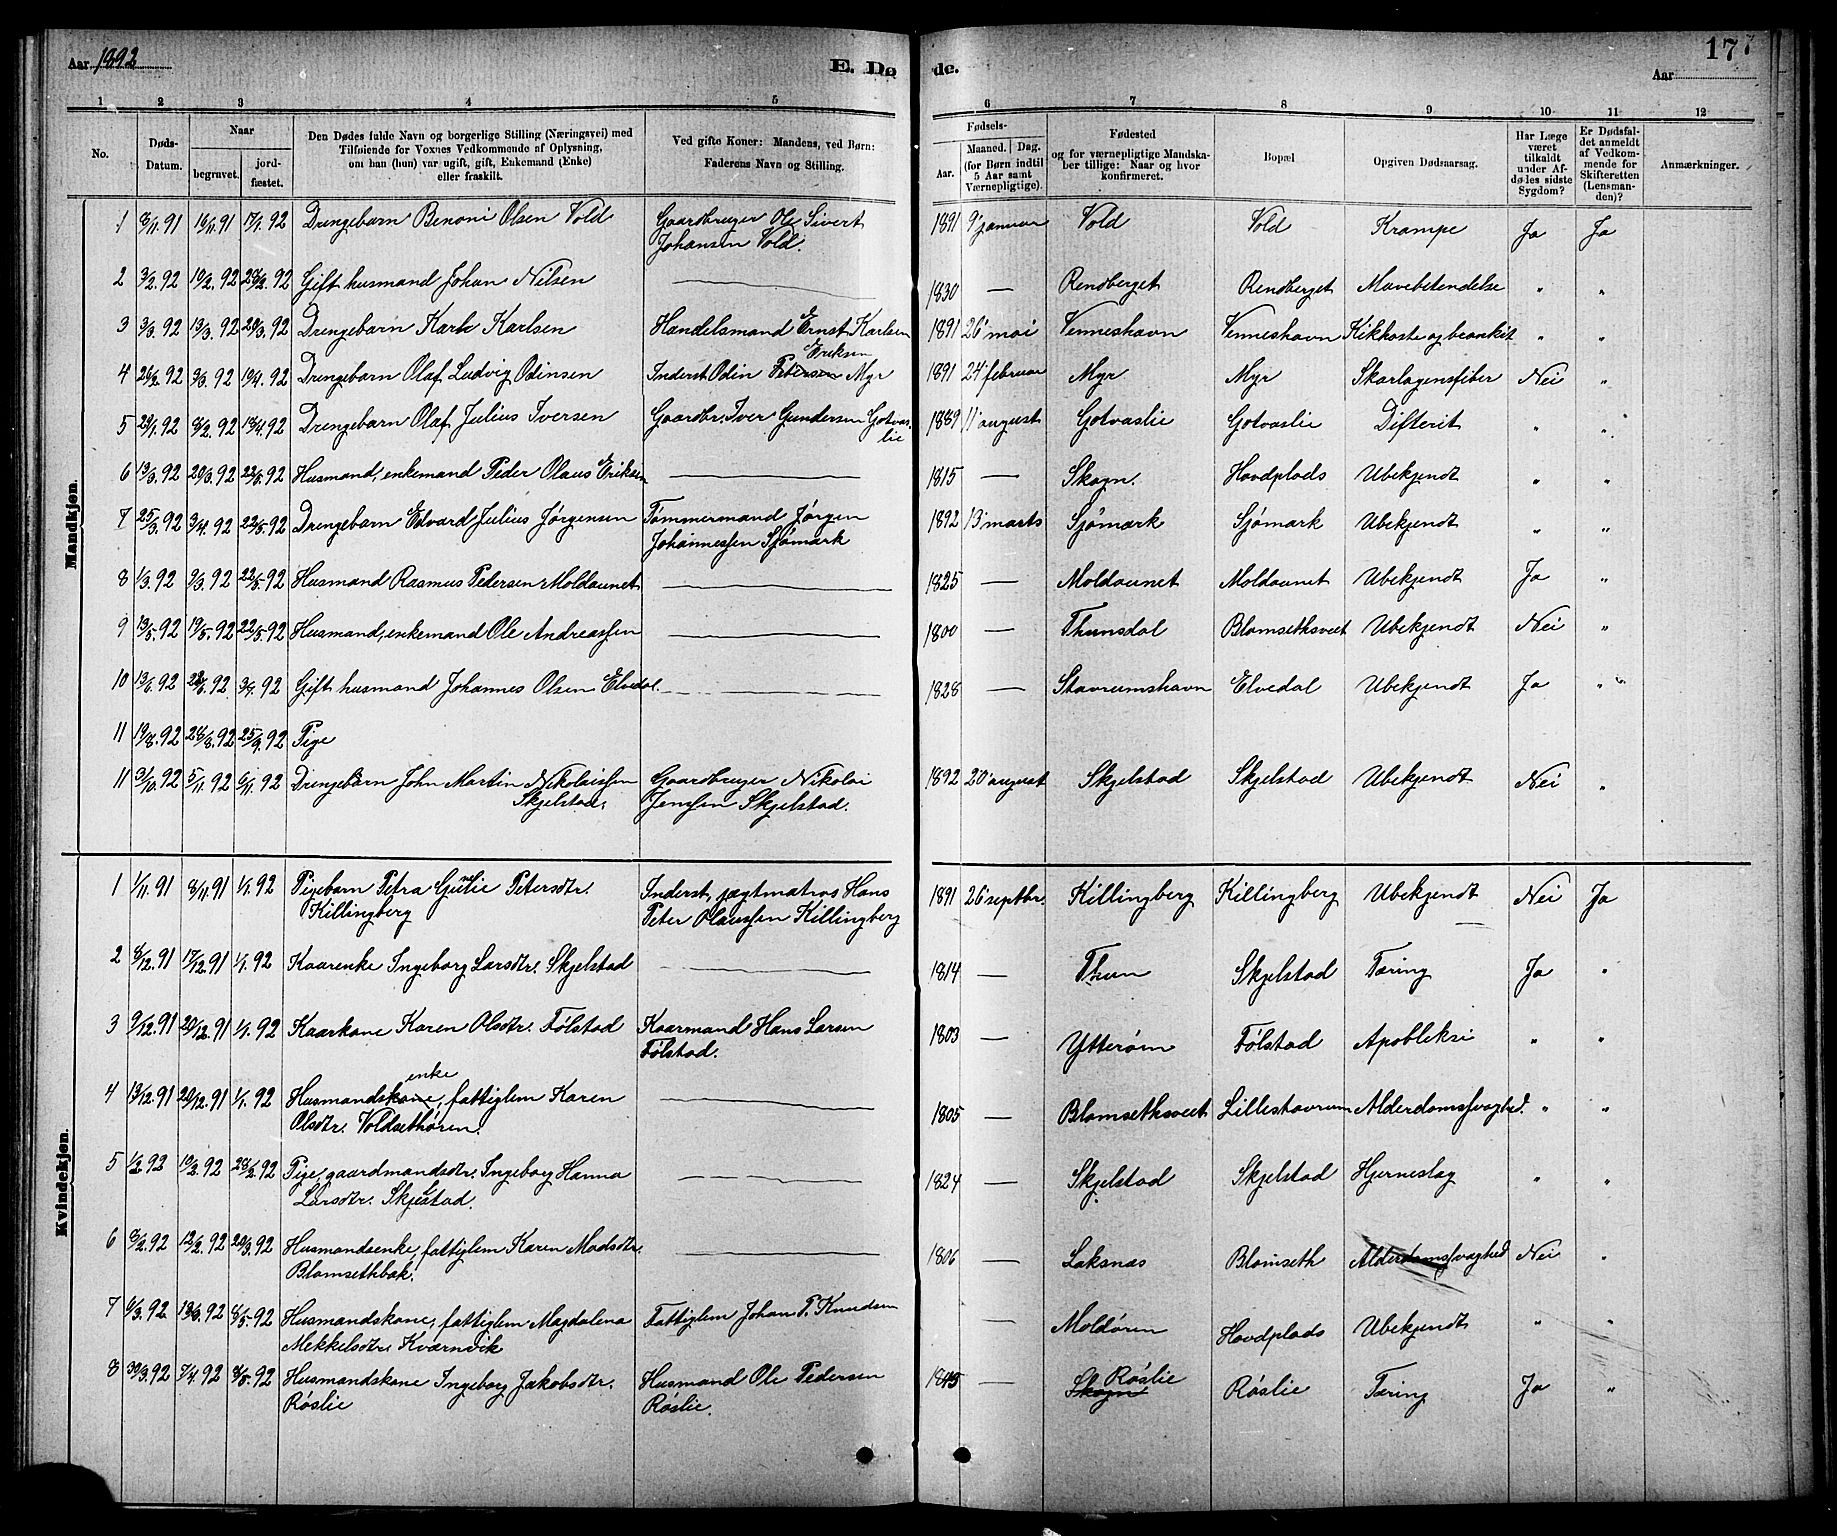 Aar 1892
E. Dø
de.
177
Aar
1 2 3 4 5 6 7 8 9 10 11 12
No.
Døds-
Datum.
Naar
begravet.
jord-
fæstet.
Den Dødes fulde Navn og borgerlige Stilling (Næringsvei) med
Tilføiende for Voxnes Vedkommende af Oplysning,
om han (hun) var ugift, gift, Enkemand (Enke)
eller fraskilt.
Ved gifte Koner: Mandens, ved Børn:
Faderens Navn og Stilling.
Fødsels-
Aar.
Maaned. Dag.
(for Børn indtil
5 Aar samt
Værnepligtige).
Fødested
og for værnepligtige Mandska-
ber tillige: Naar og hvor
konfirmeret.
Bopæl
Opgiven Dødsaarsag.
Har Læge
været
tilkaldt
under Af-
dødes sidste
Sygdom?
Er Dødsfal-
det anmeldt
af Vedkom-
mende for
Skifteretten
(Lensman-
den)?
Anmærkninger.
Mandkjøn.
1 8/11.91 16/11.91 17/1.92 Drengebarn Benoni Olsen Vold Gaardbruger Ole Sivert 1891 9' januar Vold Vold Krampe Ja Ja
Johansen Vold.
2 3/2.92 10/2.92 28/2.92 Gift husmand Johan Nilsen 1830 — Rendberget Rendberget Mavebetendelse " "
3 3/3.92 13/3.92 20/3.92 Drengebarn Karl Karlsen Handelsmand Ernst Karlsen 1891 26' mai Venneshavn Venneshavn Kikhoste og bronkit " "
Eriksen
4 26/2.92 9/3.92 19/4.92 Drengebarn Olaf Ludvig Odinsen Inderst Odin Petersen Myr 1891 24' februar Myr Myr Skarlagensfiber Nei "
5 29/1.92 8/2.92 18/4.92 Drengebarn Olaf Julius Iversen Gaardbr. Iver Gundersen Gotvas- 1889 11' august Gotvaslie Gotvaslie Difterit " "
lie
6 13/3.92 20/3.92 22/5.92 Husmand, enkemand Peder Olaus Eriksen 1815 — Skogn. Hovdplads Ubekjendt " "
7 25/3.92 3/4.92 22/5.92 Drengebarn Edvard Julius Jørgensen Tømmermand Jørgen 1892 13' marts Sjømark Sjømark Ubekjendt " "
Johannessen Sjømark
8 1/3.92 9/3.92 22/5.92 Husmand Rasmus Pedersen Moldaunet 1825 — Moldaunet Moldaunet Ubekjendt Ja "
9 13/5.92 19/5.92 22/5.92 Husmand, enkemand Ole Andreassen 1800 — Thunsdal Blomsethsveet Ubekjendt Nei "
10 13/6.92 22/6.92 3/7.92 Gift husmand Johannes Olsen Elvedal. 1828 — Stavrumshavn Elvedal Ubekjendt Ja "
11 19/8.92 28/8.92 25/9.92 Pige
11 31/10.92 5/11.92 6/11.92 Drengebarn John Martin Nikolaissen Gaardbruger Nikolai 1892 20' august Skjelstad Skjelstad Ubekjendt Nei "
Skjelstad. Jenssen Skjelstad.
Kvindekjøn.
1 1/11.91 8/11.91 1/1.92 Pigebarn Petra Petersdtr. Inderst, jagtmatros Hans 1891 26' septbr. Killingberg Killingberg Ubekjendt Nei Ja
Killingberg Peter Olaussen Killingberg
2 8/12.91 17/12.91 1/1.92 Kaarenke Ingeborg Larsdtr. Skjelstad 1814 — Thun Skjelstad Tæring Ja "
3 9/12.91 20/12.91 1/1.92 Kaarkone Karen Olsdtr. Følstad Kaarmand Hans Larsen 1803 — Ytterøen Følstad Apopleksi " "
Følstad.
enke
4 13/12.91 20/12.91 1/1.92 Husmandskone, fattiglem Karen 1805 — Blomsethsveet Lillestavrum Alderdomssvaghed. " "
Olsdtr. Voldsethøren.
5 1/2.92 10/2.92 28/2.92 Pige, gaardmandsdtr. Ingeborg Hanna 1824 — Skjelstad Skjelstad Hjerneslag " "
Larsdtr. Skjelstad.
6 8/2.92 12/2.92 20/3.92 Husmandsenke, fattiglem Karen Madsdtr. 1806 — Laksnas Blomseth Alderdomssvaghed Nei "
Blomsethbak.
7 6/3.92 13/3.92 8/5.92 Husmandskone, fattiglem Magdalena Fattiglem Johan P. Knudsen — Moldøren Hovdplads Ubekjendt " "
Mekkelsdtr. Kvernvik
8 30/3.92 7/4.92 8/5.92 Husmandskone Ingeborg Jakobsdtr. Husmand Ole Pedersen — Skogn Røslie Røslie Tæring Ja "
Røslie Røslie.